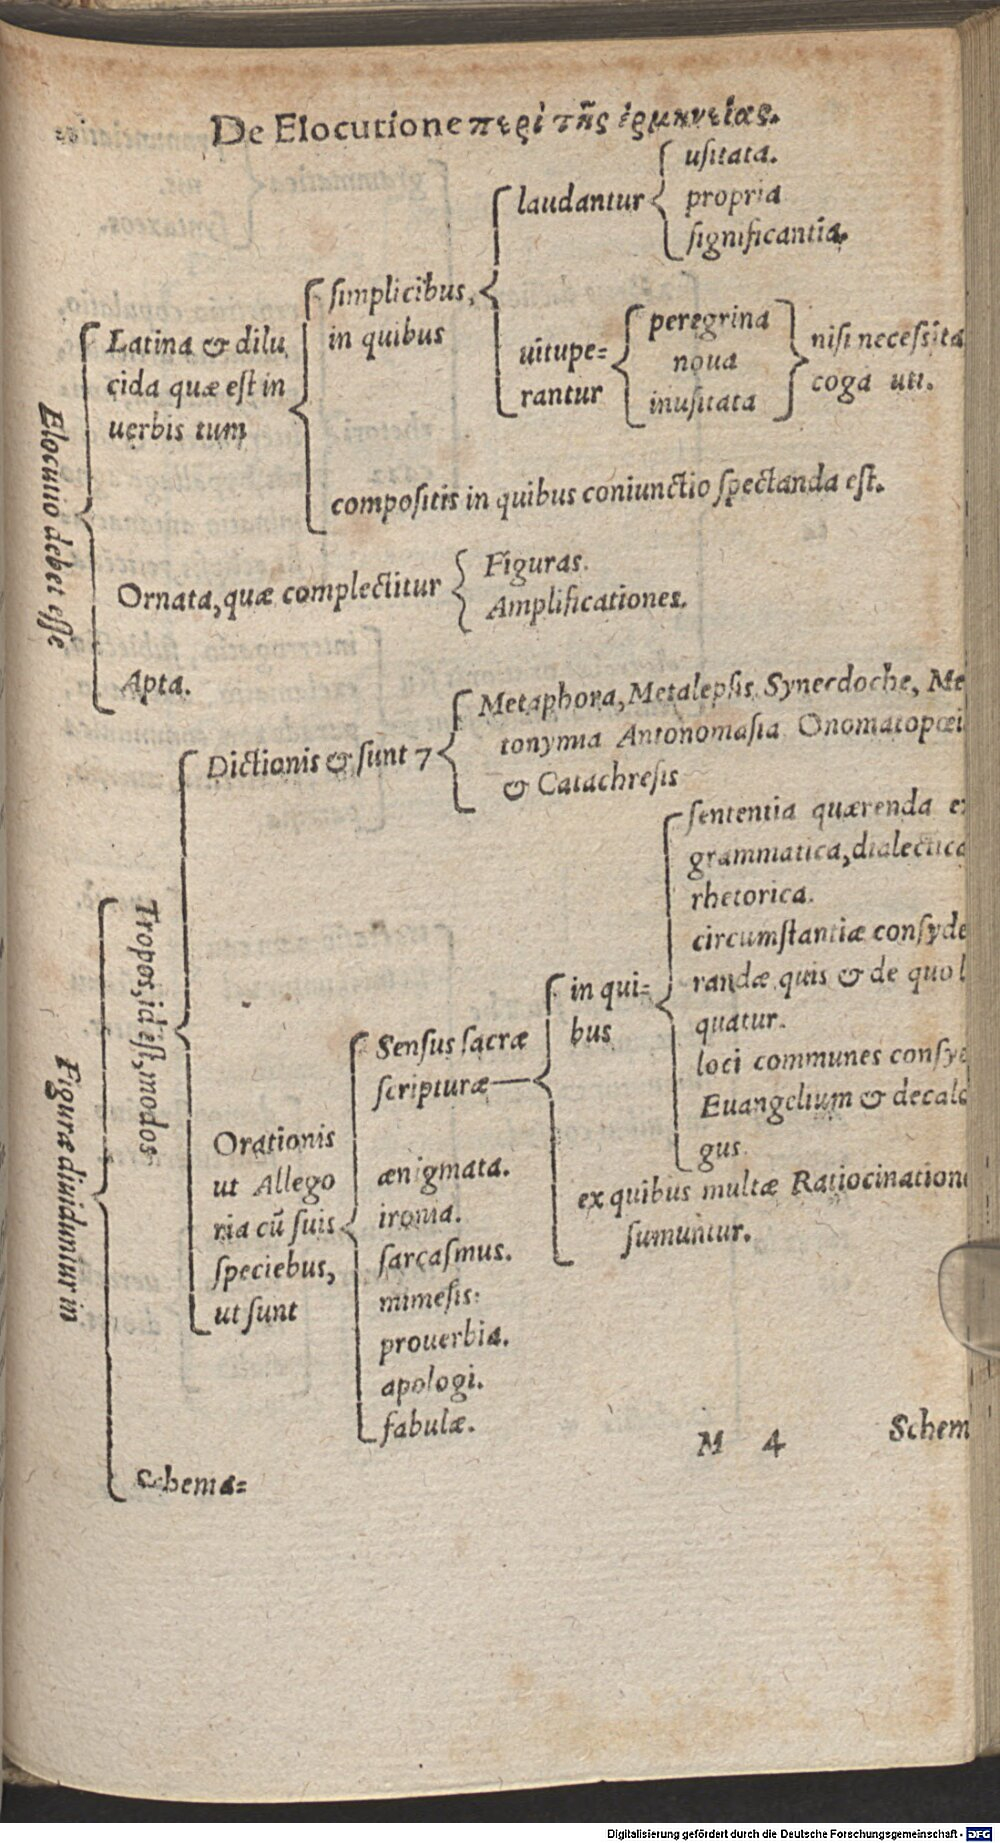 De Elocutione περὶ τῆς ἑρμηνείας.
Elocutio debet eſſe
Latina & dilu
cida quæ eſt in
uerbis tum
ſimplicibus,
in quibus
laudantur
uſitata.
propria
ſignificantia.
uitupe=
rantur
peregrina
noua
inuſitata
niſi neceſſita
coga uti.
compoſitis in quibus coniunctio ſpectanda eſt.
Ornata, quæ complectitur
Figuras.
Amplificationes.
Apta.
Figuræ diuiduntur in
Tropos, id eſt, modos
Dictionis & ſunt 7
Metaphora, Metalepſis Synecdoche, Me
tonymia Antonomaſia Onomatopœi
& Catachreſis
Orationis
ut Allego
ria cũ ſuis
ſpeciebus,
ut ſunt
Senſus ſacræ
ſcripturæ
in qui=
bus
ſententia quærenda e
grammatica, dialectica
rhetorica.
circumſtantiæ conſyde
randæ quis & de quo l
quatur.
loci communes conſyd
Euangelium & decalo
gus
ex quibus multæ Ratiocination
ſumuntur.
ænigmata.
ironia.
ſarcaſmus.
mimeſis:
prouerbia.
apologi.
fabulæ.
Schema=
M 4
Schem
Digitalisierung gefördert durch die Deutsche Forschungsgemeinschaft - DFG